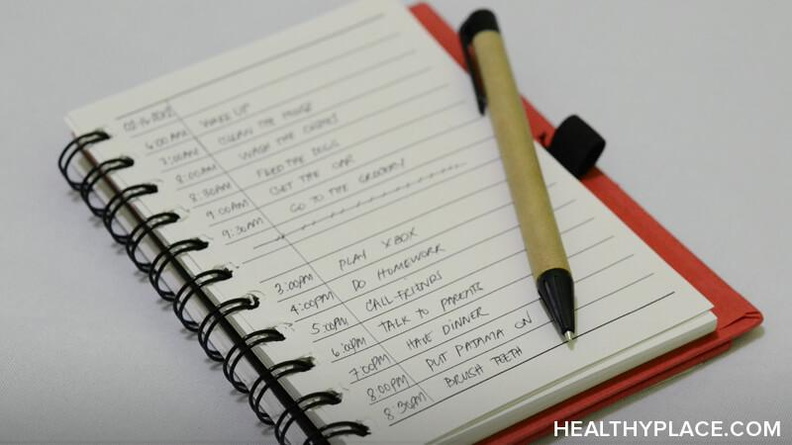 6:00AM WAKE UP
7:00AM CLEAN THE HOUSE
8:00AM WASH THE DISHES
8:30AM FEED THE DOGS
9:00AM GET THE CAR
9:30AM GO TO THE GROCERY
3:00PM PLAY XBOX
4:00PM DO HOMEWORK
5:00PM CALL FRIENDS
6:00PM TALK TO PARENTS
7:00PM HAVE DINNER
8:00PM PUT PAJAMA ON
8:30PM BRUSH TEETH
HEALTHYPLACE.COM